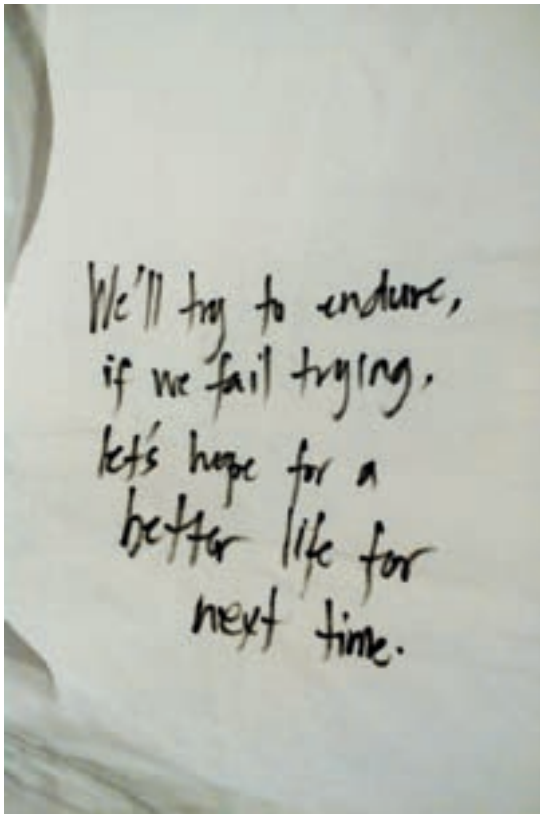 We'll try to endure,
if we fail trying,
let's hope for a
better life for
next time.